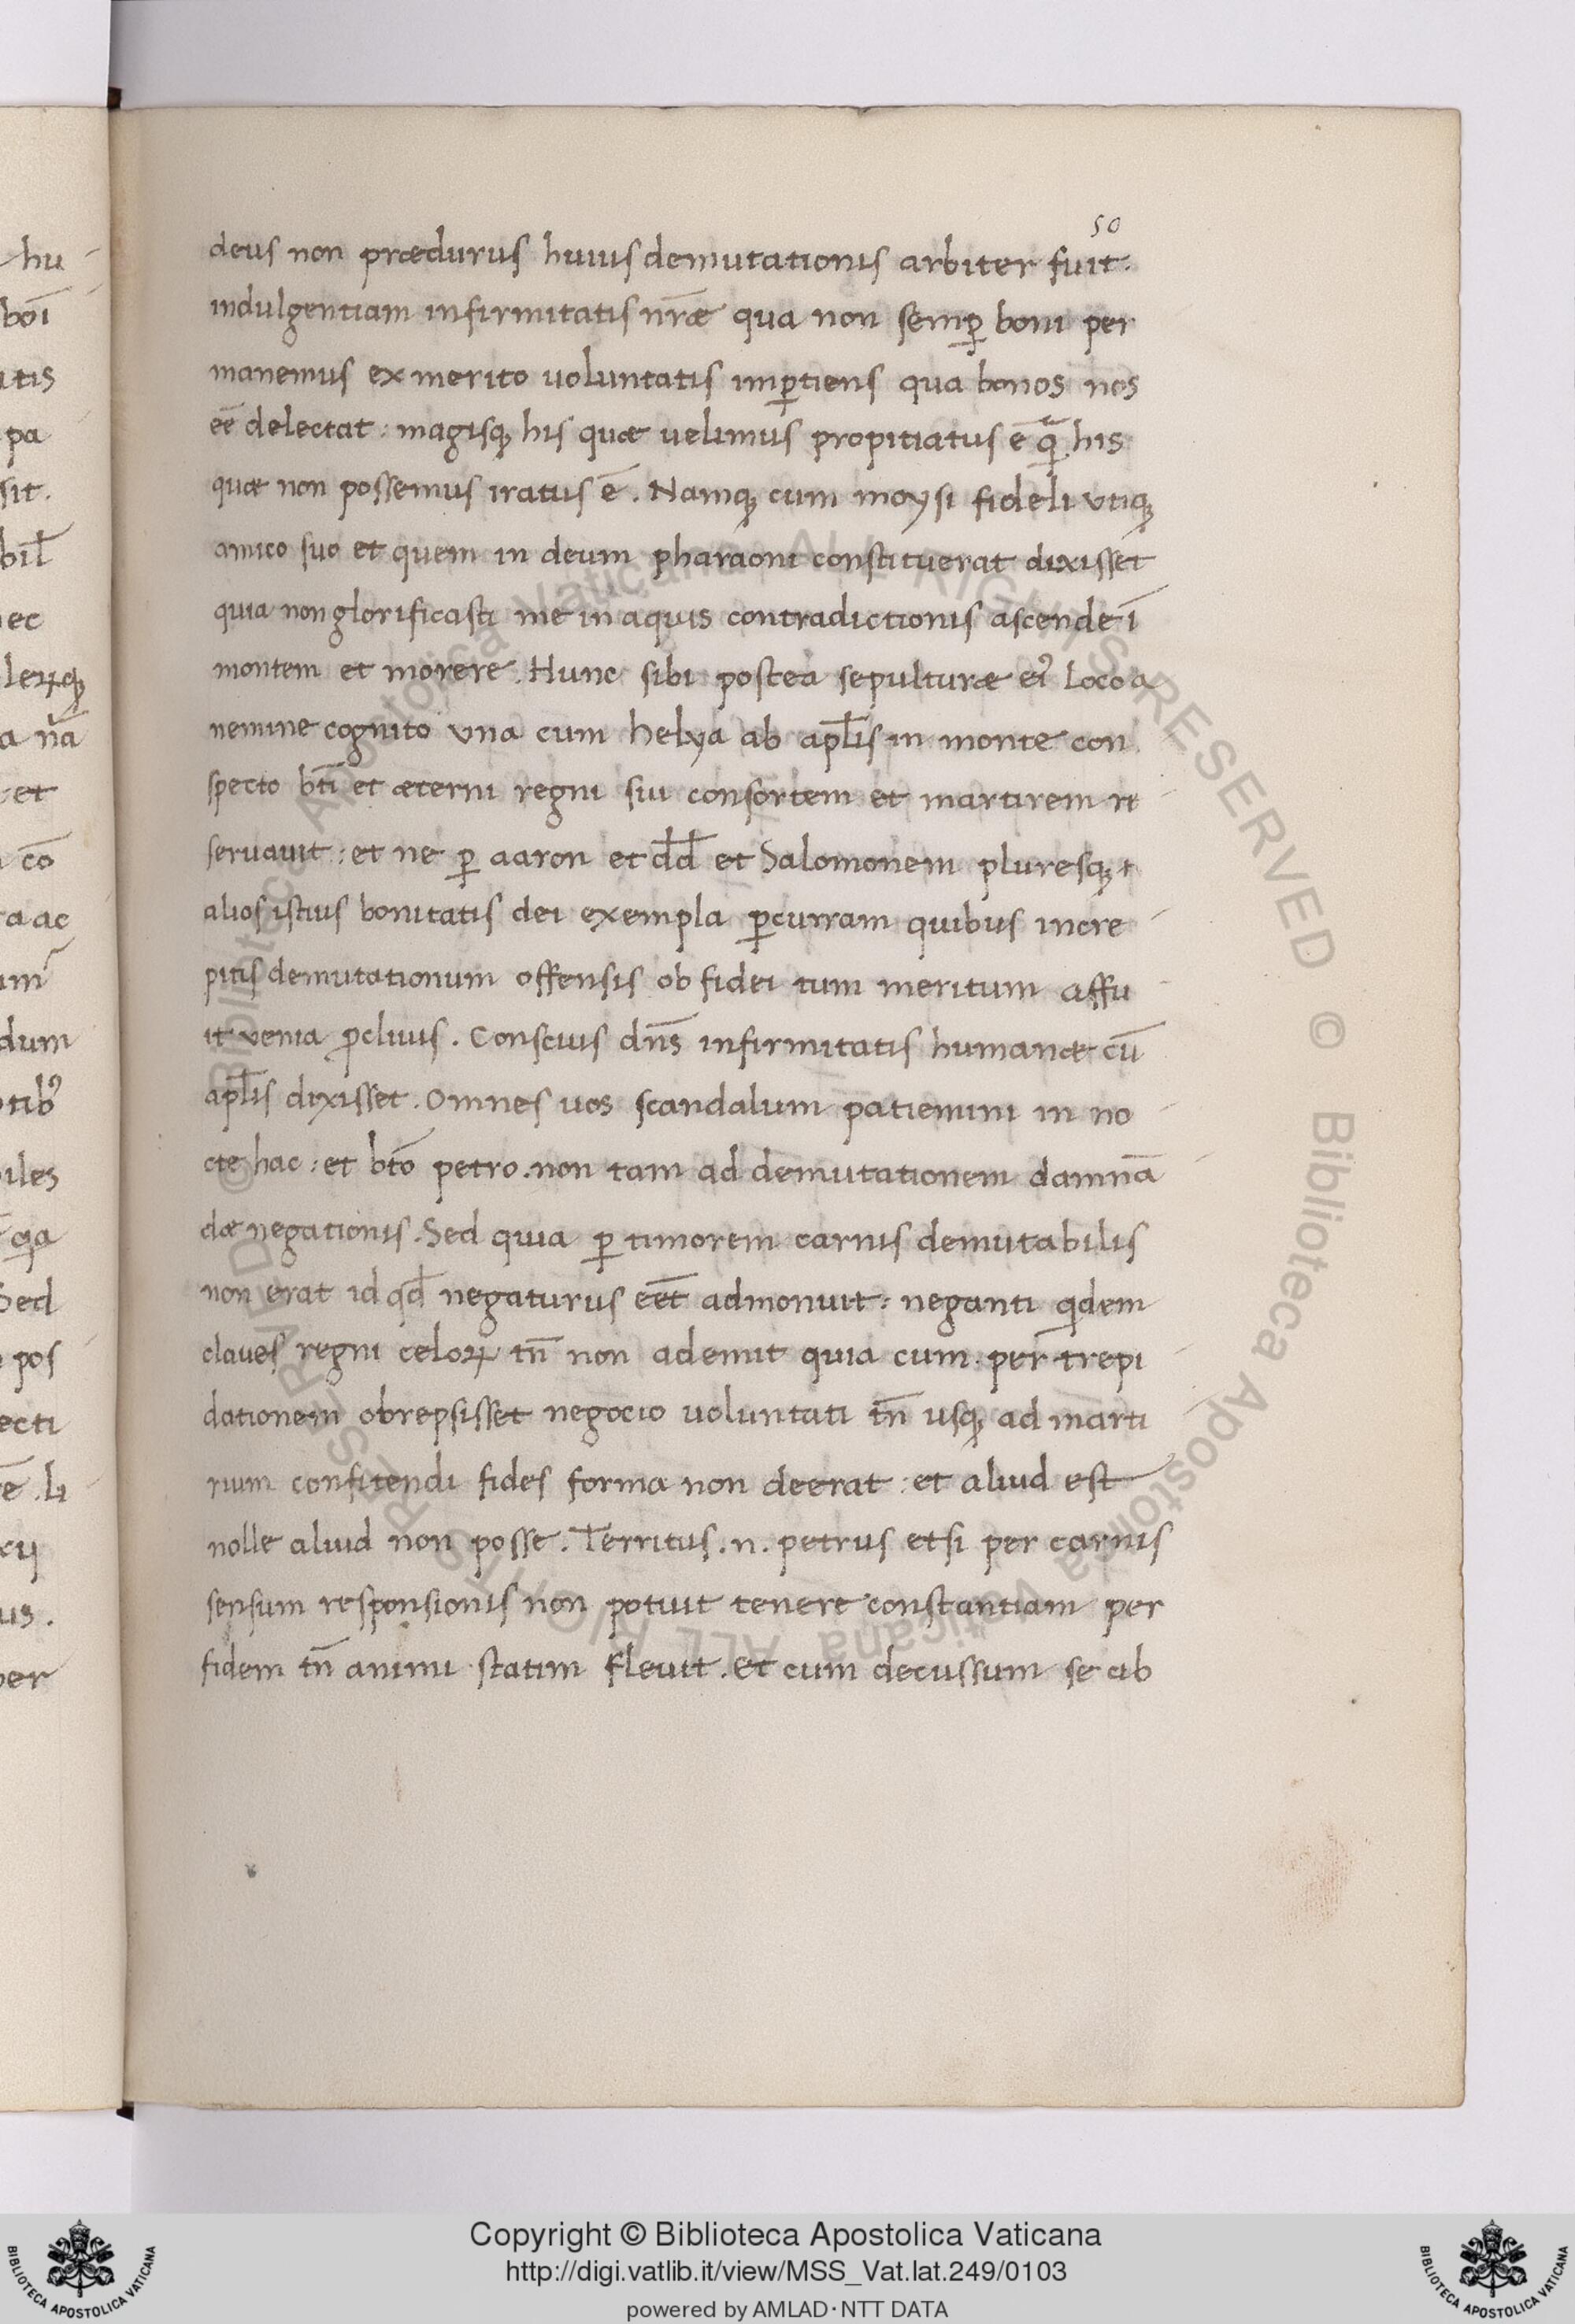 50
deus non prædurus huius demutationis arbiter fuit.
indulgentiam infirmitatis nr̄æ qua non semꝑ boni per
manemus ex merito uoluntatis imꝑtiens qua bonos nos
eē delectat : magisqꝫ his quæ uelimus propitiatus ē ꝙ̃ his
quæ non possemus iratus ē . Namqꝫ cum moysi fideli vtiqꝫ
amico suo et quem in deum pharaoni constituerat dixisset
quia non glorificasti me in aquis contradictionis ascende ī
montem et morere . Hunc sibi postea sepulturæ eiꝰ loco a
nemine cognito vna cum helya ab apl̄is in monte con
specto bt̄i et æterni regni sui consortem et martirem re
seruauit : et ne ꝑ aaron et dd̄ et Salomonem pluresqꝫ
alios istius bonitatis dei exempla ꝑcurram quibus incre
pitis demutationum offensis ob fidei tum meritum affu
it venia ꝓcliuis . Conscius dn̄s infirmitatis humanæ cū
apl̄is dixisset . Omnes uos scandalum patiemini in no
cte hac : et bt̄o petro . non tam ad demutationem damnā
dæ negationis . Sed quia ꝑ timorem carnis demutabilis
non erat id qd̄ negaturus eēt admonuit : neganti qdem
claues regni celoꝝ tn̄ non ademit quia cum per trepi
dationem obrepsisset negocio uoluntati tn̄ usqꝫ ad marti
rium confitendi fides forma non deerat : et aliud est
nolle aliud non posse . Territus . n . petrus etsi per carnis
sensum responsionis non potuit tenere constantiam per
fidem tn̄ animi statim fleuit . et cum decussum se ab
hu
boī
pa
sit.
ec
a n̄a
et
cō
a ac
dum
Sed
pos
ecti
us .
per
© Biblioteca Apostolica Vaticana ALL RIGHTS RESERVED © Biblioteca Apostolica Vaticana ALL RIGHTS RESERVED
BIBLIOTECA APOSTOLICA VATICANA
Copyright © Biblioteca Apostolica Vaticana
http://digi.vatlib.it/view/MSS_Vat.lat.249/0103
powered by AMLAD·NTT DATA
BIBLIOTECA APOSTOLICA VATICANA